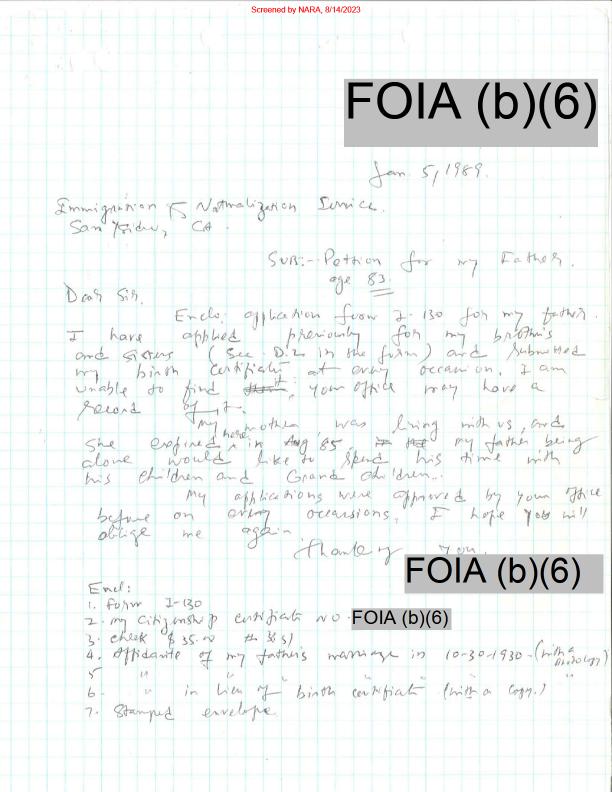 Screened by NARA, 8/14/2023
FOIA (b)(6)
Jan. 5, 1989.
Immigration & Natralization Service.
San Ysidro, CA.
SUB:- Petition for my Father.
age 83.
Dear Sir.
Enclo: application from I-130 for my father.
I have applied previously for my brothers
and sisters (See D.2 in the form) and submitted
my birth certificate at every occasion. I am
unable to find it, your office may have a
record of it.
My mother, was living with us, and
She expired here in Aug 85, my father being
alone would like to spend his time with
his children and Grand Children.
My applications were approved by your office
before on every occassions, I hope you will
oblige me again.
Thanking you.
FOIA (b)(6)
Encl:
1. Form I-130
2. my citizenship certificate NO. FOIA (b)(6)
3. check $35.00
4. Affidavite of my father's marriage in 10-30-1930 - (with a
5 " "
6. " in lieu of "birth certificate" (with a copy.) "
7. Stamped envelope